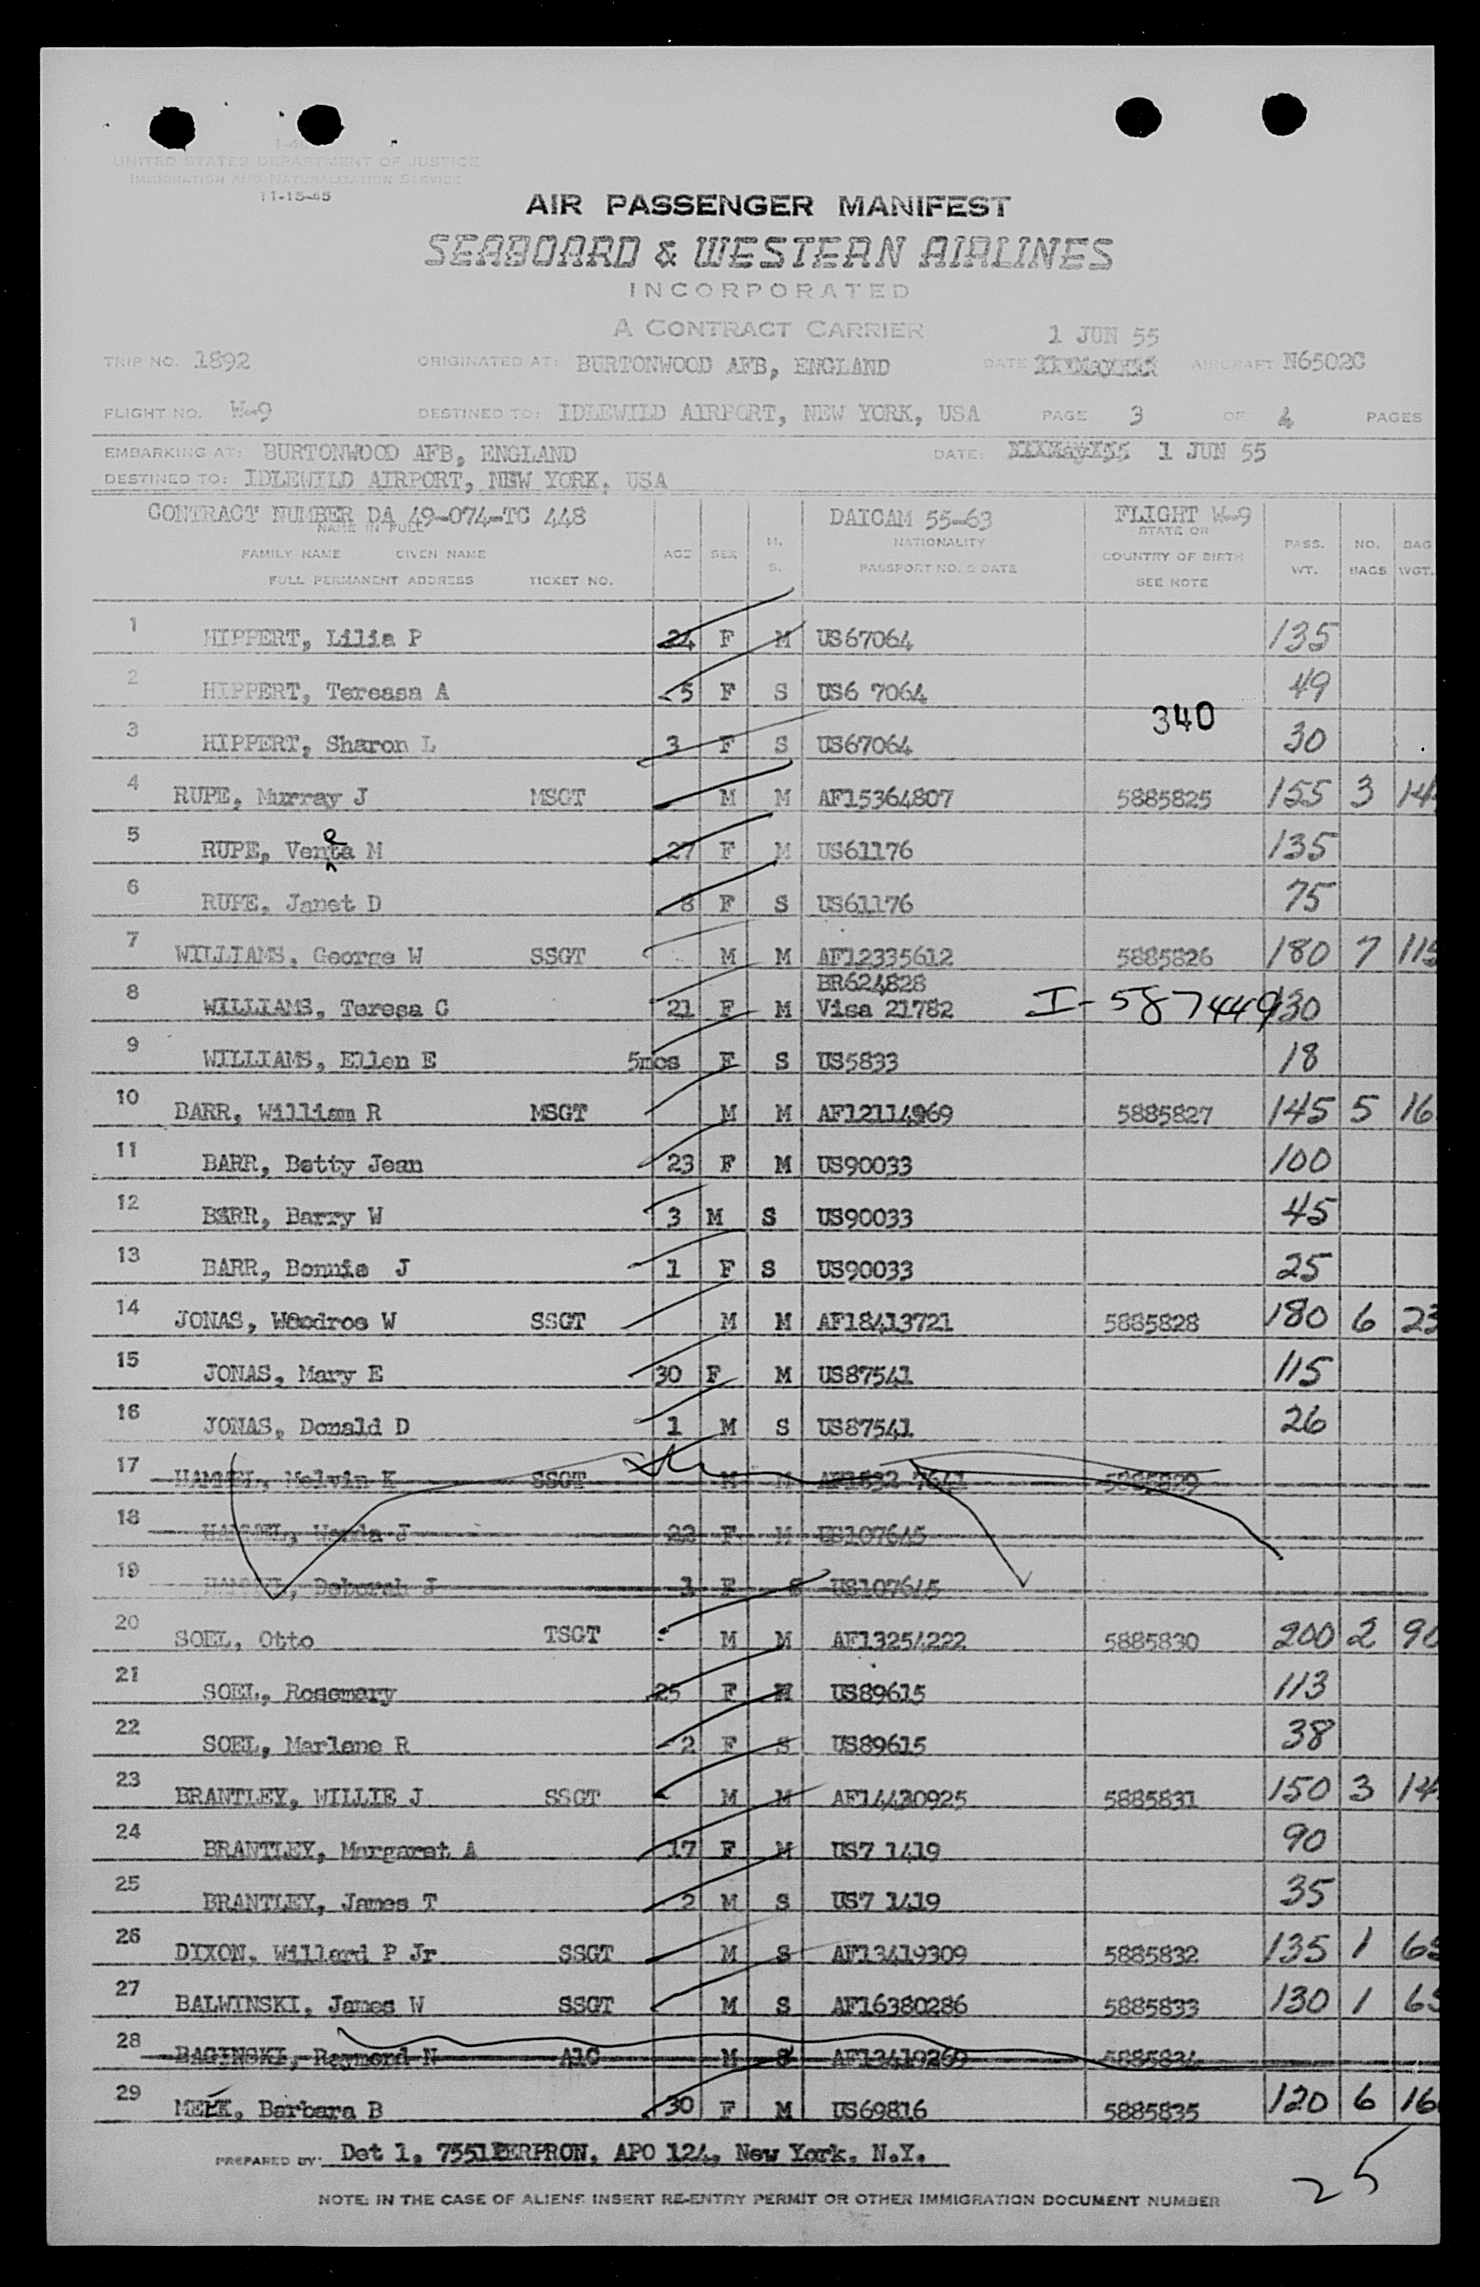 I-466
UNITED STATES DEPARTMENT OF JUSTICE
IMMIGRATION AND NATURALIZATION SERVICE
11-15-45
AIR PASSENGER MANIFEST
SEABOARD & WESTERN AIRLINES
INCORPORATED
A CONTRACT CARRIER
1 JUN 55
TRIP NO. 1892 ORIGINATED AT: BURTONWOOD AFB, ENGLAND DATE AIRCRAFT N6502C
FLIGHT NO. W-9 DESTINED TO: IDLEWILD AIRPORT, NEW YORK, USA PAGE 3 OF 4 PAGES
EMBARKING AT: BURTONWOOD AFB, ENGLAND DATE: 1 JUN 55
DESTINED TO: IDLEWILD AIRPORT, NEW YORK, USA
CONTRACT NUMBER DA 49-074-TC 448 DAICAM 55-63 FLIGHT W-9
NAME IN FULL M. NATIONALITY STATE OR
FAMILY NAME GIVEN NAME AGE SEX COUNTRY OF BIRTH PASS. NO. BAG
FULL PERMANENT ADDRESS TICKET NO. S. PASSPORT NO. & DATE SEE NOTE WT. BAGS WGT.
1 HIPPERT, Lilia P 24 F M US67064 135
2 HIPPERT, Tereasa A 5 F S US6 7064 49
340
3 HIPPERT, Sharon L 3 F S US67064 30
4 RUPE, Murray J MSGT M M AF15364807 5885825 155 3 14
5 RUPE, Veneta M 27 F M US61176 135
6 RUPE, Janet D 8 F S US61176 75
7 WILLIAMS, George W SSGT M M AF12335612 5885826 180 7 115
BR624828
8 WILLIAMS, Teresa C 21 F M Visa 21782 I-587449 130
9 WILLIAMS, Ellen E 5mos F S US5833 18
10 BARR, William R MSGT M M AF12114969 5885827 145 5 16
11 BARR, Betty Jean 23 F M US90033 100
12 BARR, Barry W 3 M S US90033 45
13 BARR, Bonnie J 1 F S US90033 25
14 JONAS, Woodros W SSGT M M AF18413721 5885828 180 6 23
15 JONAS, Mary E 30 F M US87541 115
16 JONAS, Donald D 1 M S US87541 26
17 HAMMEL, Melvin K SSGT M M AF1532 7641 5885829
18 HAMMEL, Wanda J 22 F M US107645
19 HAMMEL, Deborah J 1 F S US107645
20 SOEL, Otto TSGT M M AF13254222 5885830 200 2 90
21 SOEL, Rosemary 25 F M US89615 113
22 SOEL, Marlene R 2 F S US89615 38
23 BRANTLEY, WILLIE J SSGT M M AF14430925 5885831 150 3 14
24 BRANTLEY, Margaret A 17 F M US7 1419 90
25 BRANTLEY, James T 2 M S US7 1419 35
26 DIXON, Willard P Jr SSGT M S AF13419309 5885832 135 1 65
27 BALWINSKI, James W SSGT M S AF16380286 5885833 130 1 65
28 BAGINSKI, Raymond N A1C M S AF13419269 5885834
29 MEEK, Barbara B 30 F M US69816 5885835 120 6 16
PREPARED BY: Det 1, 7551PERPRON, APO 124, New York, N.Y.
25
NOTE: IN THE CASE OF ALIENS INSERT RE-ENTRY PERMIT OR OTHER IMMIGRATION DOCUMENT NUMBER